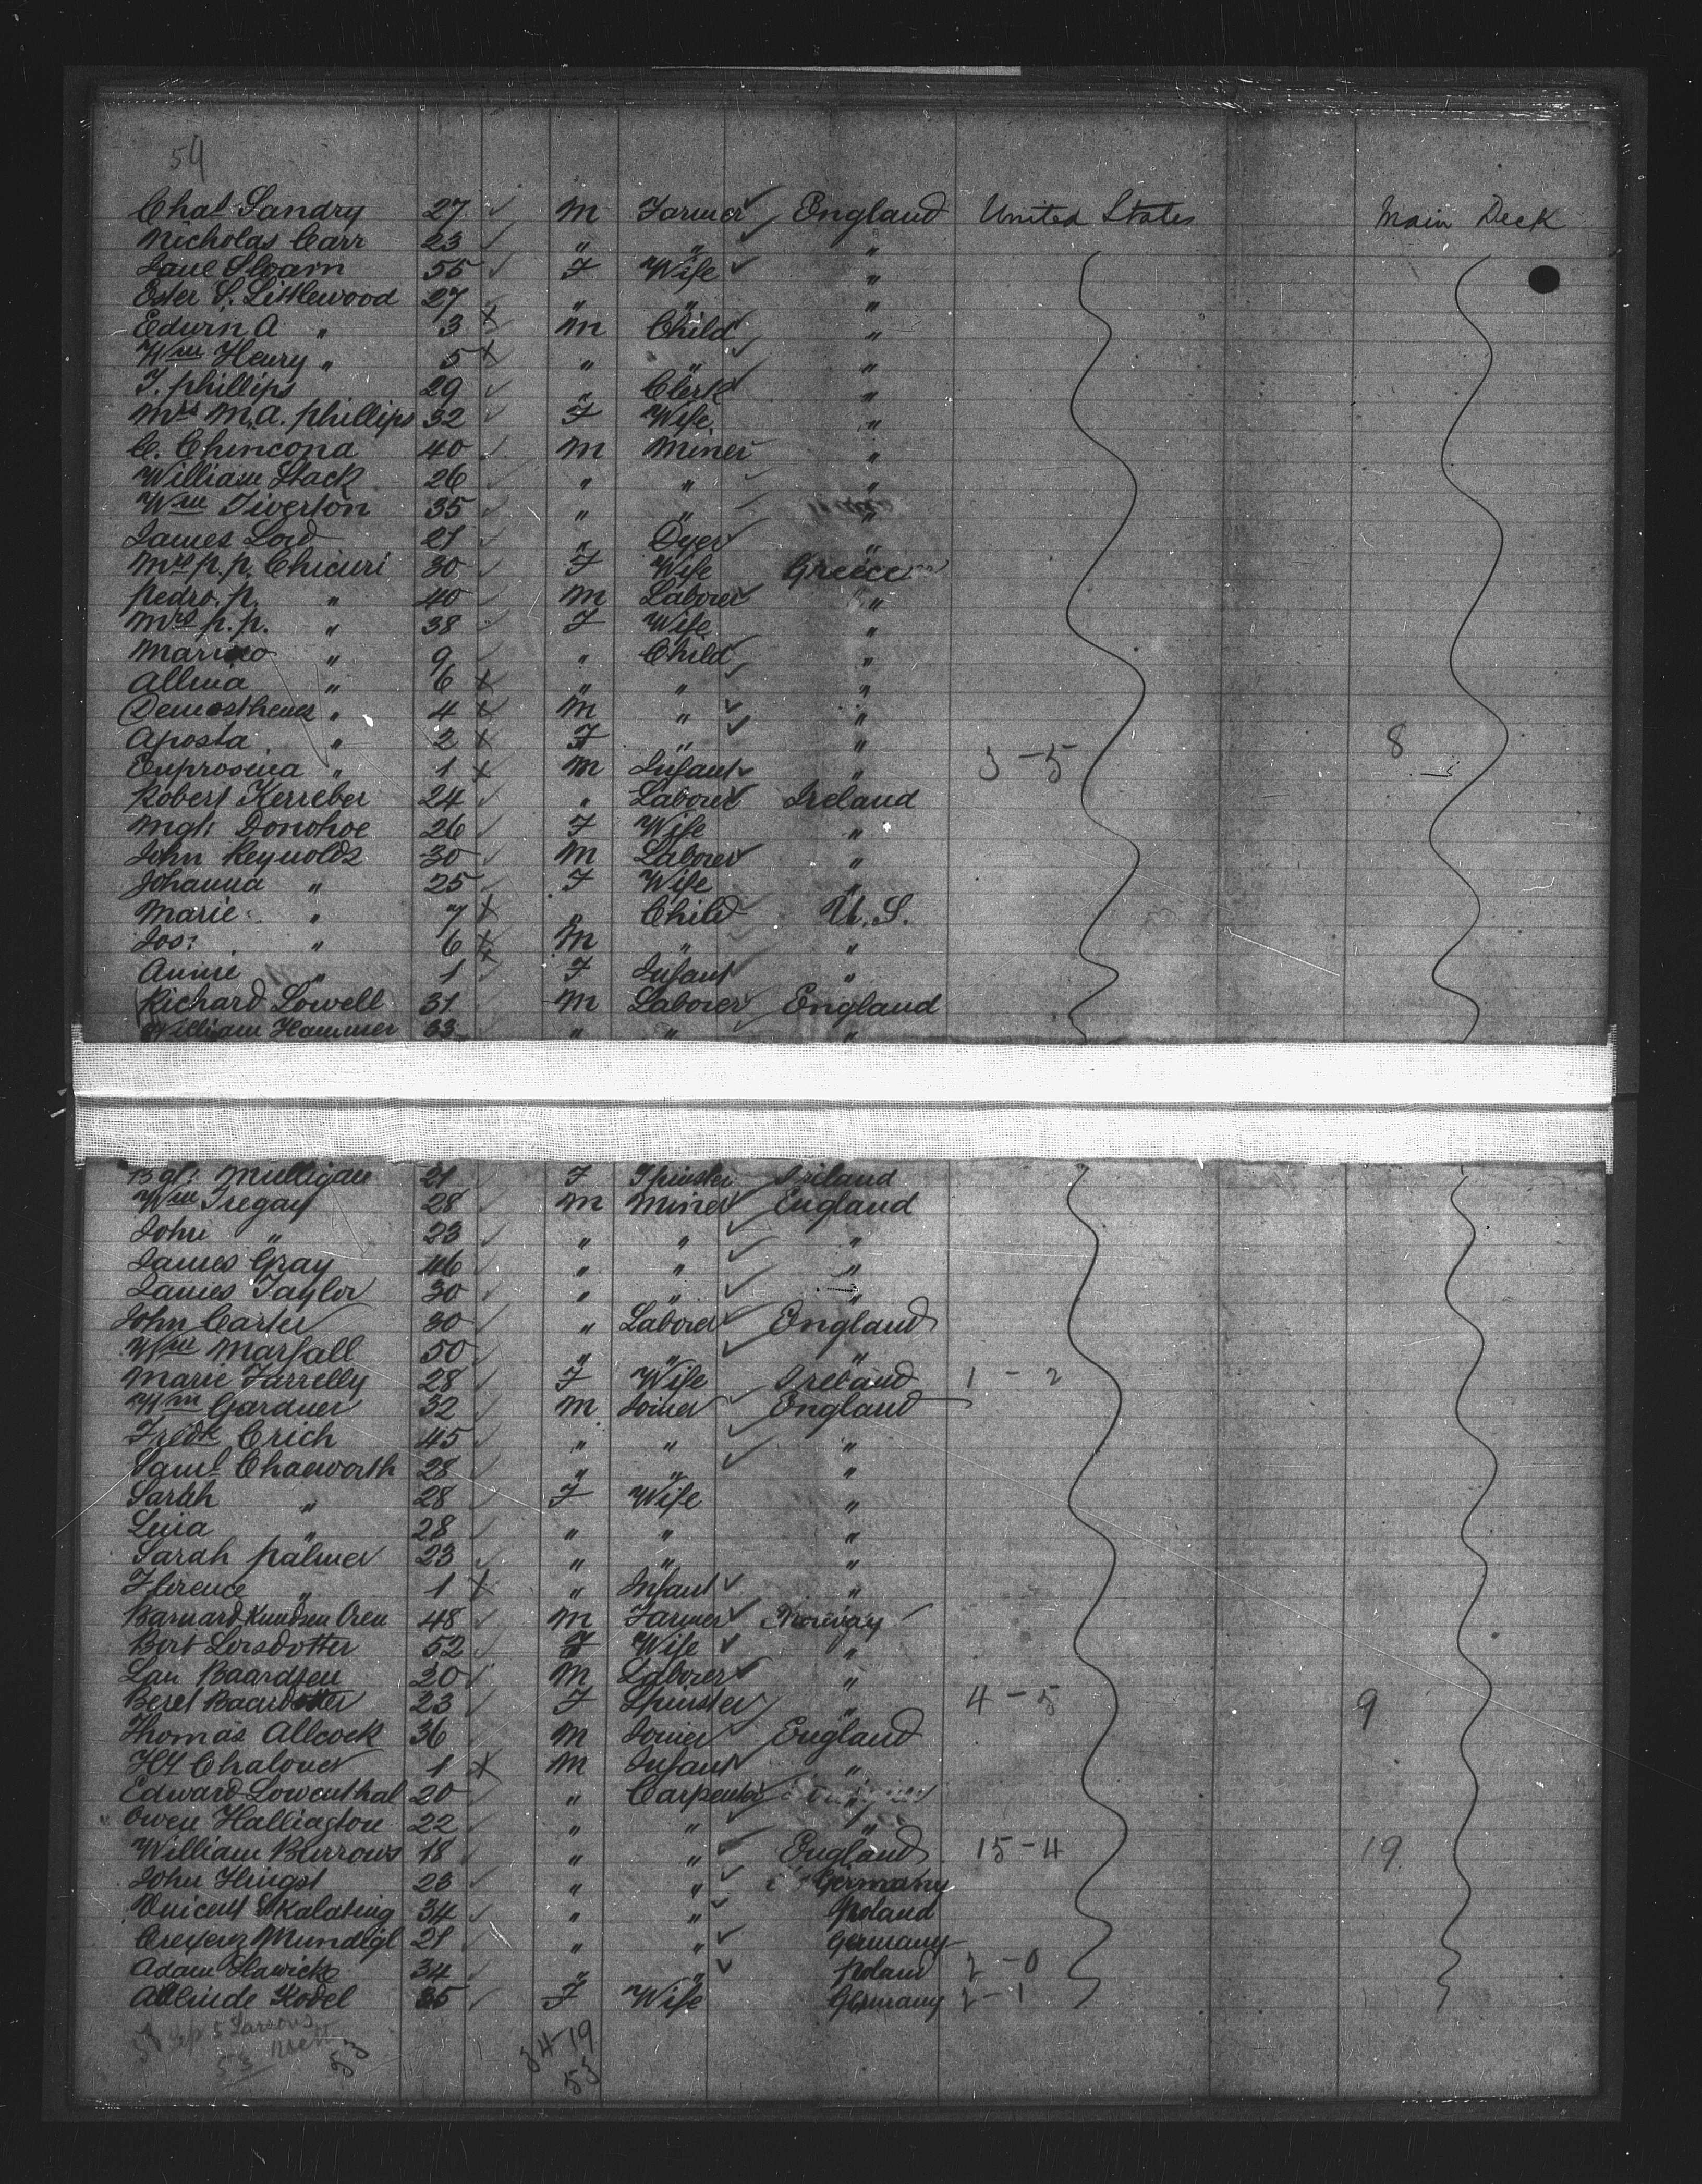 54
Chas Landry 27 ✓ M Farmer ✓ England United States Main Deck
Nicholas Carr 23 ✓ " " ✓ "
Jane Sloam 55 ✓ F Wife ✓ "
Ester S. Littlewood 27 " " "
Edwin A " 3 x M Child ✓ "
Wm Henry " 5 x " " ✓ "
T. Phillips 29 ✓ " Clerk ✓ "
Mrs M.A. Phillips 32 ✓ F Wife "
C. Chincona 40 ✓ M Miner "
William Stack 26 ✓ " " ✓ "
Wm Tiverton 35 ✓ " " ✓ "
James Lord 21 ✓ " Dyer ✓ "
Mrs P.P. Chicuri 30 ✓ F Wife Greece
Pedro. P. " 40 ✓ M Laborer ✓ "
Mrs P.P. " 38 ✓ F Wife "
" 9 ✓ " Child ✓ "
Allma " 6 x " " "
Demosthenes " 4 x M " ✓ "
Aposta " 2 x F " ✓ " 8
Euprosina " 1 x M Infant ✓ " 3-5
Robert Kerreber 24 ✓ " Laborer ✓ Ireland
Mgt. Donohoe 26 ✓ F Wife "
John Reynolds 30 ✓ M Laborer ✓ "
Johanna " 25 ✓ F Wife "
Marie " 7 x " Child ✓ U.S.
Jos: " 6 x M " "
Annie " 1 x F Infant ✓ "
Richard Lowell 31 ✓ M Laborer ✓ England
William Hammer 33 ✓ " " "
Bgt. Mulligan 21 ✓ F Spinster Ireland
Wm Tregay 28 ✓ M Miner ✓ England
John " 23 ✓ " " ✓ "
James Gray 46 ✓ " " ✓ "
James Taylor 30 ✓ " " ✓ "
John Carter 30 ✓ " Laborer ✓ England
Wm Marfall 50 ✓ " " ✓ "
Marie Farrelly 28 ✓ F Wife Ireland 1-2
Wm Gardner 32 ✓ M Joiner ✓ England
Fredk Crich 45 ✓ " " ✓ "
Saml Chaeworth 28 ✓ " " ✓ "
Sarah " 28 ✓ F Wife "
" 28 ✓ " " "
Sarah Palmer 23 ✓ " " "
Florence " 1 x " Infant ✓ "
Barnard Knudsen Oren 48 ✓ M Farmer ✓ Norway
Bert Lorsdotter 52 ✓ F Wife ✓ "
Baardsen 20 ✓ M Laborer ✓ "
Beret Baardotter 23 ✓ F Spinster " 4-5 9
Thomas Allcock 36 ✓ M Joiner ✓ England
Hy Chaloner 1 x M Infant ✓ "
Edward Lowenthal 20 ✓ " Carpenter ✓ "
Owen Halliagton 22 ✓ " " "
William Burrows 18 ✓ " " ✓ England 15-4 19
John Hingst 23 ✓ " " ✓ Germany
Skalating 34 ✓ " " ✓ Poland
Mundigl 21 ✓ " " ✓ Germany
Adam Slawick 34 ✓ " " ✓ Poland 2-0
Kodel 35 ✓ F Wife Germany 2-1
34-19
53
53
53